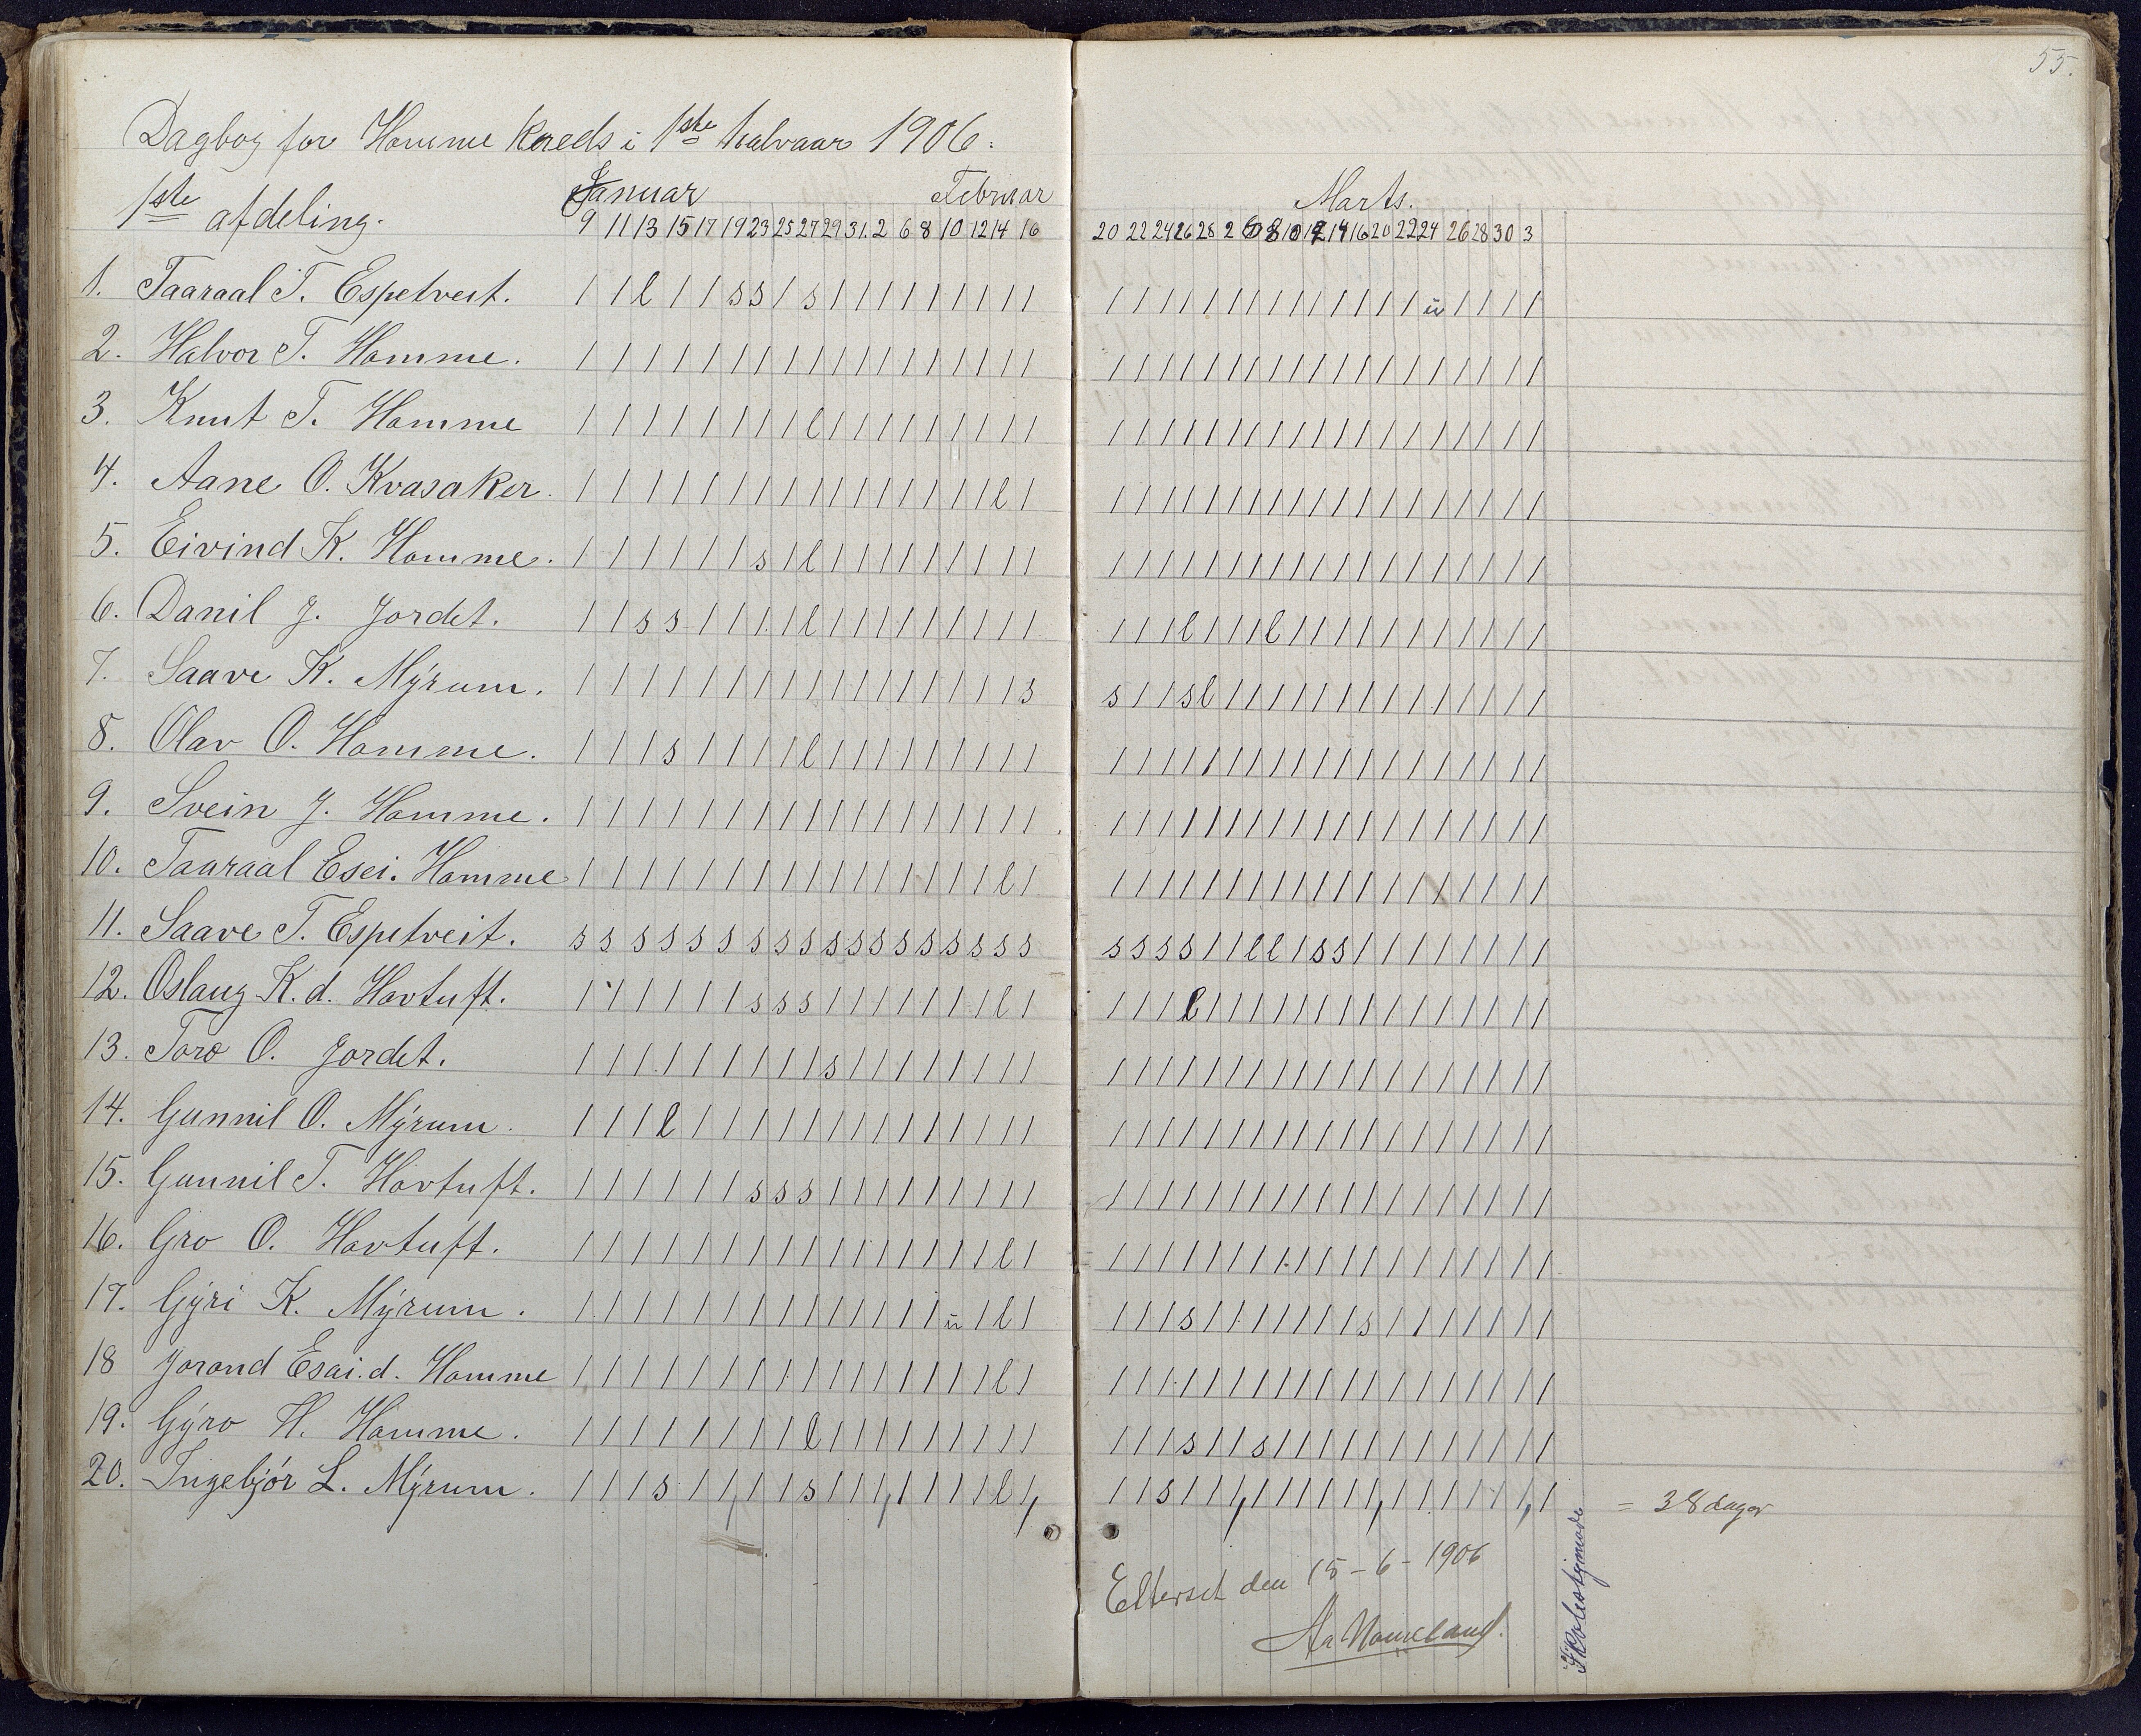 55.
Dagbog for Homme Kreds i 1ste halvaar 1906.
1ste afdeling.
Januar Februar
9 11 13 15 17 19 23 25 27 29 31. 2 6 8 10 12 14 16
Marts.
20 22 24 26 28 2 6 8 10 12 14 16 20 22 24 26 28 30 3
1. Taaraal T. Espetveit. / / l / / s s / s / / / / / / / / / / / / / / / / / / / / / / / ü / / / /
2. Halvor T. Homme. / / / / / / / / / / / / / / / / / / / / / / / / / / / / / / / / / / / / /
3. Knut T. Homme / / / / / / / / l / / / / / / / / / / / / / / / / / / / / / / / / / / / /
4. Aane O. Kvasaker. / / / / / / / / / / / / / / / / l / / / / / / / / / / / / / / / / / / / /
5. Eivind K. Homme. / / / / / / s / l / / / / / / / / / / / / / / / / / / / / / / / / / / / /
6. Danil J. Jordet. / / s s / / / / l / / / / / / / / / / / / l / / / l / / / / / / / / / / /
7. Saave K. Mýrum. / / / / / / / / / / / / / / / / / s s / / s l / / / / / / / / / / / / / /
8. Olav O. Homme. / / / s / / / / l / / / / / / / / / / / / / / / / / / / / / / / / / / / /
9. Svein J. Homme. / / / / / / / / / / / / / / / / / / / / / / / / / / / / / / / / / / / / /
10. Taaraal Esei. Homme / / / / / / / / / / / / / / / / l / / / / / / / / / / / / / / / / / / / /
11. Saave T. Espetveit. s s s s s s s s s s s s s s s s s s s s s s / / l l / s s / / / / / / / /
12. Oslaug K. d. Hovtuft. / / / / / / s s s / / / / / / / l / / / / l / / / / / / / / / / / / / / /
13. Toro O. Jordet. / / / / / / / / / s / / / / / / / / / / / / / / / / / / / / / / / / / / /
14. Gunnil O. Mýrum. / / / l / / / / / / / / / / / / / / / / / / / / / / / / / / / / / / / / /
15. Gunnil T. Hovtuft. / / / / / / s s s / / / / / / / / / / / / / / / / / / / / / / / / / / / /
16. Gro O. Hovtuft. / / / / / / / / / / / / / / / / l / / / / / / / / / / / / / / / / / / / /
17. Gýri K. Mýrum. / / / / / / / / / / / / / / ü / l / / / / s / / / / / / / s / / / / / / /
18 Jorond Esai. d. Homme / / / / / / / / / / / / / / / / l / / / / / / / / / / / / / / / / / / / /
19. Gýro H. Homme. / / / / / / / / l / / / / / / / / / / / / s / / s / / / / / / / / / / / /
20. Ingebjór L. Mýrum. / / / s / / / / s / / / / / / / l / / / s / / / / / / / / / / / / / / / /
= 38 dager
Skolestyrmøde
Efterset den 15-6-1906
Aa Homeland.